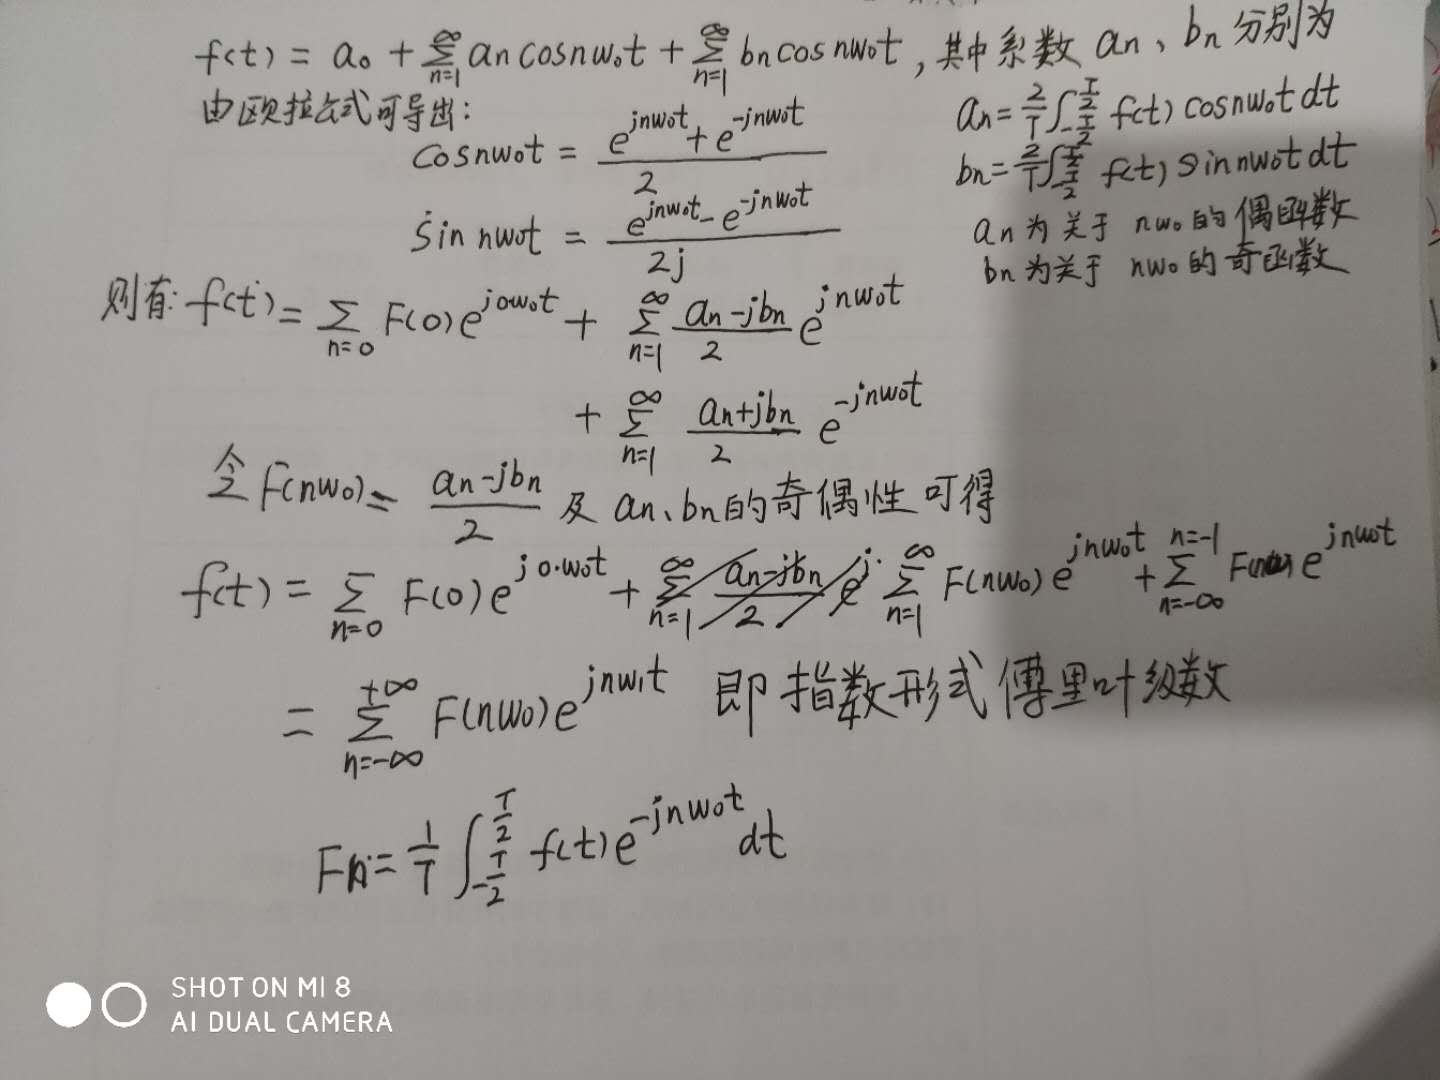 f(t) = a₀ + ∑_{n=1}^{∞} an cosnw₀t + ∑_{n=1}^{∞} bn cos nw₀t , 其中系数 an、bn 分别为
由欧拉公式可导出:
an = 2/T ∫_{-T/2}^{T/2} f(t) cosnw₀t dt
cosnw₀t = (e^{jnw₀t} + e^{-jnw₀t})/2
bn = 2/T ∫_{-T/2}^{T/2} f(t) sin nw₀t dt
sin nw₀t = (e^{jnw₀t} - e^{-jnw₀t})/2j
an 为关于 nw₀ 的偶函数
bn 为关于 nw₀ 的奇函数
则有: f(t) = ∑_{n=0} F(0) e^{j0w₀t} + ∑_{n=1}^{∞} (an-jbn)/2 e^{jnw₀t}
+ ∑_{n=1}^{∞} (an+jbn)/2 e^{-jnw₀t}
令 F(nw₀) = (an-jbn)/2 及 an、bn的奇偶性可得
f(t) = ∑_{n=0} F(0) e^{j0·w₀t} + ∑_{n=1}^{∞} F(nw₀) e^{jnw₀t} + ∑_{n=-∞}^{n=-1} e^{jnw₀t}
= ∑_{n=-∞}^{+∞} F(nw₀) e^{jnw₁t} 即指数形式傅里叶级数
= 1/T ∫_{-T/2}^{T/2} f(t) e^{-jnw₀t} dt
SHOT ON MI 8
AI DUAL CAMERA